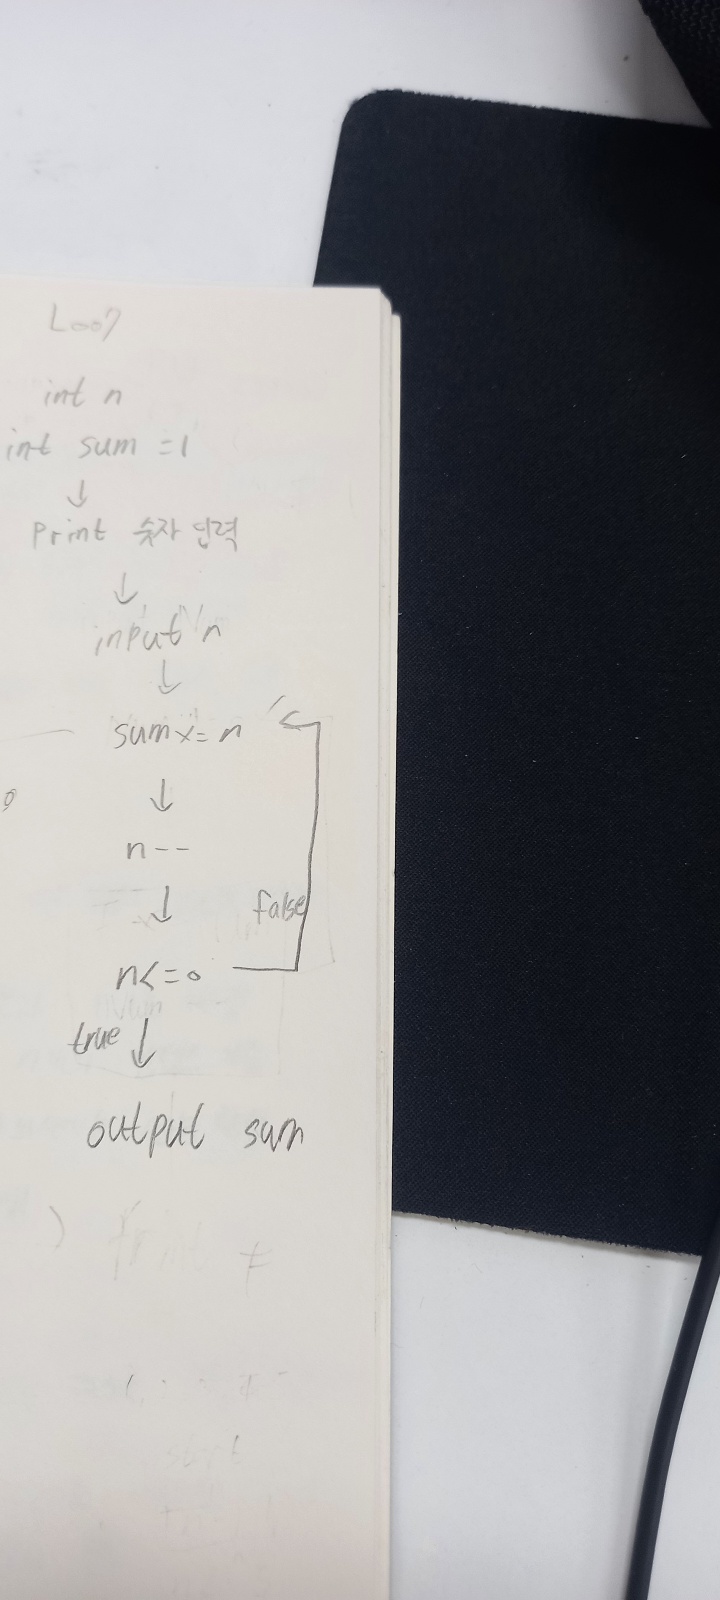 Loop
int n
int sum = 1
↓
Print 숫자 입력
↓
input n
↓
sum x= n
↓
n--
↓
false
n<=0
true ↓
output sum